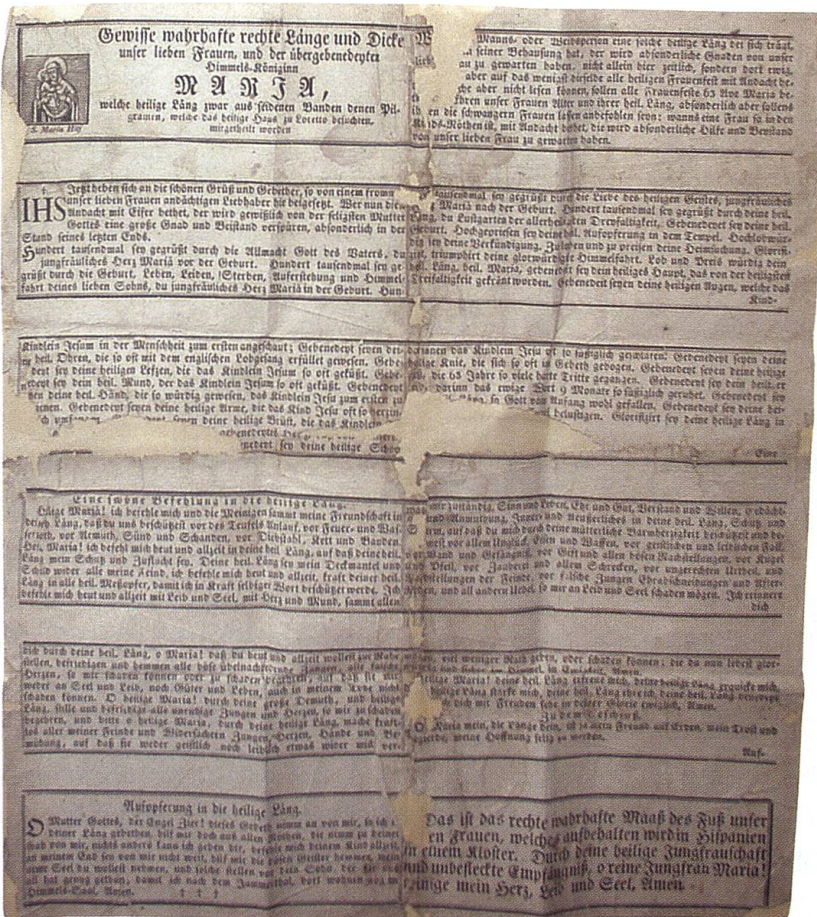 Gewisse wahrhafte rechte Länge und Dicke
unser lieben Frauen, und der übergebenedeyten
Himmels-Königinn
MARJA,
welche heilige Läng zwar aus seidenen Banden denen Pil-
gramen, welche das heilige Haus zu Loretto besuchten,
mitgetheilt worden
S. Maria Hilf
Manns- oder Weibsperson eine solche heilige Läng bei sich trägt,
seiner Behausung hat, der wird absonderliche Gnaden von unser
au zu gewarten haben, nicht allein hier zeitlich, sondern dort ewig,
aber auf das wenigst dieselbe alle heiligen Frauenfest mit Andacht be-
che aber nicht lesen können, sollen alle Frauenfeste 63 Ave Maria be-
Ehren unser Frauen Alter und ihrer heil. Läng, absonderlich aber sollens
en die schwangern Frauen lasen anbefohlen seyn: wanns eine Frau so in den
Kinds-Nöthen ist, mit Andacht bethet, die wird absonderliche Hilfe und Beystand
von unser lieben Frau zu gewarten haben.
IHS
Jetzt heben sich an die schönen Grüß und Gebether, so von einem fromm
unser lieben Frauen andächtigen Liebhaber hie beigesetzt. Wer nun die
Andacht mit Eifer bethet, der wird gewißlich von der seligsten Mutter
Gottes eine große Gnad und Beistand verspüren, absonderlich in der
Stand seines letzten Ends.
Hundert tausendmal sey gegrüßt durch die Allmacht Gott des Vaters, du
jungfräuliches Herz Mariä vor der Geburt. Hundert tausendmal sey ge-
grüßt durch die Geburt, Leben, Leiden, Sterben, Auferstehung und Himmel-
fahrt deines lieben Sohns, du jungfräuliches Herz Mariä in der Geburt. Hun-
tausendmal sey gegrüßt durch die Liebe des heiligen Geistes, jungfräuliches
Mariä nach der Geburt. Hundert tausendmal sey gegrüßt durch deine heil.
Läng, du Lustgarten der allerheiligsten Dreyfaltigkeit, Gebenedeyt sey deine heil.
Geburt. Hochgepriesen sey deine heil. Aufopferung in dem Tempel. Hochlobwür-
dig sey deine Verkündigung. Zu loben und zu preisen deine Heimsuchung. Glorifi-
ziert, triumphiert deine glorwürdige Himmelfahrt. Lob und Preis würdig dein
heil. Läng, heil. Maria, gebenedeyt sey dein heiliges Haupt, das von der heiligsten
Dreifaltigkeit gekrönt worden. Gebenedeit seyen deine heiligen Augen, welche das
Kind-
Kindlein Jesum in der Menschheit zum ersten angeschaut; Gebenedeyt seyen dei-
heil. Ohren, die so oft mit dem englischen Lobgesang erfüllet gewesen. Gebe-
deyt sey deine heiligen Lefzen, die das Kindlein Jesum so oft geküßt. Gebe-
nedeyt sey dein heil. Mund, der das Kindlein Jesum so oft geküßt. Gebenedeyt
deine heil. Händ, die so würdig gewesen, das Kindlein Jesu zum ersten zu
Gebenedeyt seyen deine heilige Arme, die das Kind Jesu oft so
seyen deine heilige Brüst, die das Kindlein
sey deine heilige
das Kindlein Jesu oft so Gebenedeyt seyen deine
heilige Knie, die sich so oft in Gebeth gebogen. Gebenedeyt seyen deine heilige
die 63 Jahre so viel harte Tritte gegangen. Gebenedeyt sey dein heil.
darinn das ewige Wort 9 Monate so süßiglich geruhet. Gebenedeyt sey
so Gott von Anfang wohl gefallen. Gebenedeyt sey deine hei-
belustigen. Glorifiziert sey deine heilige Läng in
Eine
Eine schöne Befehlung in die heilige Läng.
Heilige Maria! ich befehle mich und die Meinigen sammt meine Freundschaft in
deine heil. Läng, daß du uns beschützest vor des Teufels Anlauf, vor Feuer- und Was-
vor Armuth, Sünd und Schanden, vor Diebstahl, Kett und Banden.
Maria! ich befehl mich heut und allzeit in deine heil. Läng, auf daß deine heil.
Läng mein Schutz und Zuflucht sey. Deine heil. Läng sey mein Deckmantel und
Schild wider alle meine Feind, ich befehle mich heut und allzeit, kraft deiner heil.
Läng in alle heil. Meßopfer, damit ich in Kraft selbiger Wort beschützet werde. Ich
befehle mich heut und allzeit mit Leib und Seel, mit Herz und Mund, sammt allen
mir zuständig, Sinn und Leben, Ehr und Gut, Verstand und Willen, Gedächt-
und Anmuthung, Inner- und Aeußerliches in deine heil. Läng, Schutz und
auf daß du mich durch deine mütterliche Barmherzigkeit beschützest und be-
vor allem Unglück, Eisen und Waffen, vor geistlichen und leiblichen Fall,
und Gefängniß, vor Gift und allen bösen Nachstellungen, vor Kugel
und Pfeil, vor Zauberei und allem Schrecken, vor ungerechten Urtheil, und
Nachstellungen der Feinde, vor falsche Zungen Ehrabschneidungen und After-
reden, und all andern Uebel so mir an Leib und Seel schaden mögen. Ich erinnere
dich
dich durch deine heil. Läng, o Maria! daß du heut und allzeit wollest zur Ruhe
stellen, befriedigen und hemmen alle böse übelnachredende Zungen, alle falsche
Herzen, so mir schaden können oder zu schaden begehren, auf daß sie mir
weder an Seel und Leib, noch Güter und Leben, auch in meinem Tode nicht
schaden können. O heilige Maria! durch deine große Demuth, und heilige
Läng, stille und befriedige alle unruhige Zungen und Herzen, so mir zu schaden
begehren, und bitte o heilige Maria, durch deine heilige Läng, mache kraft-
los aller meiner Feinde und Widersachern Zungen, Herzen, Hände und Be-
mühung, auf daß sie weder geistlich noch leiblich etwas wider mich ver-
viel weniger Rath geben, oder schaden können; die du nun lebest glor-
im Himmel in Ewigkeit, Amen.
Heilige Maria! deine heil. Läng erfreue mich, deine heilige Läng erquicke mich,
heilige Läng stärke mich, deine heil. Läng
dich mit Freuden sehe in dieser Glorie, Amen.
Zu dem Beschluß.
O Maria mein, die Länge dein, ist ja mein Freund auf Erden, mein Trost und
meine Hoffnung selig zu werden.
Auf-
Aufopferung in die heilige Läng.
O Mutter Gottes, der Engel Zier! dieses Gebeth nimm an von mir, so ich in
deiner Läng gebethen, hilf mir doch aus allen Nöthen,
von mir, nichts anders kann ich geben dir, befehle mich deinem Kind allzeit,
an meinem End sey von mir nicht weit, hilf mir die bösen Geister hemmen, mein
arme Seel du wollest nehmen, und solche stellen vor dein Sohn, der für
all hat genug gethan; damit ich nach dem Jammerthal, dort wohnen mög im
Himmels-Saal, Amen. † † †
Das ist das rechte wahrhafte Maaß des Fuß unser
lieben Frauen, welches aufbehalten wird in Hispanien
in einem Kloster. Durch deine heilige Jungfrauschaft
und unbefleckte Empfängniß, o reine Jungfrau Maria!
reinige mein Herz, Leib und Seel, Amen.